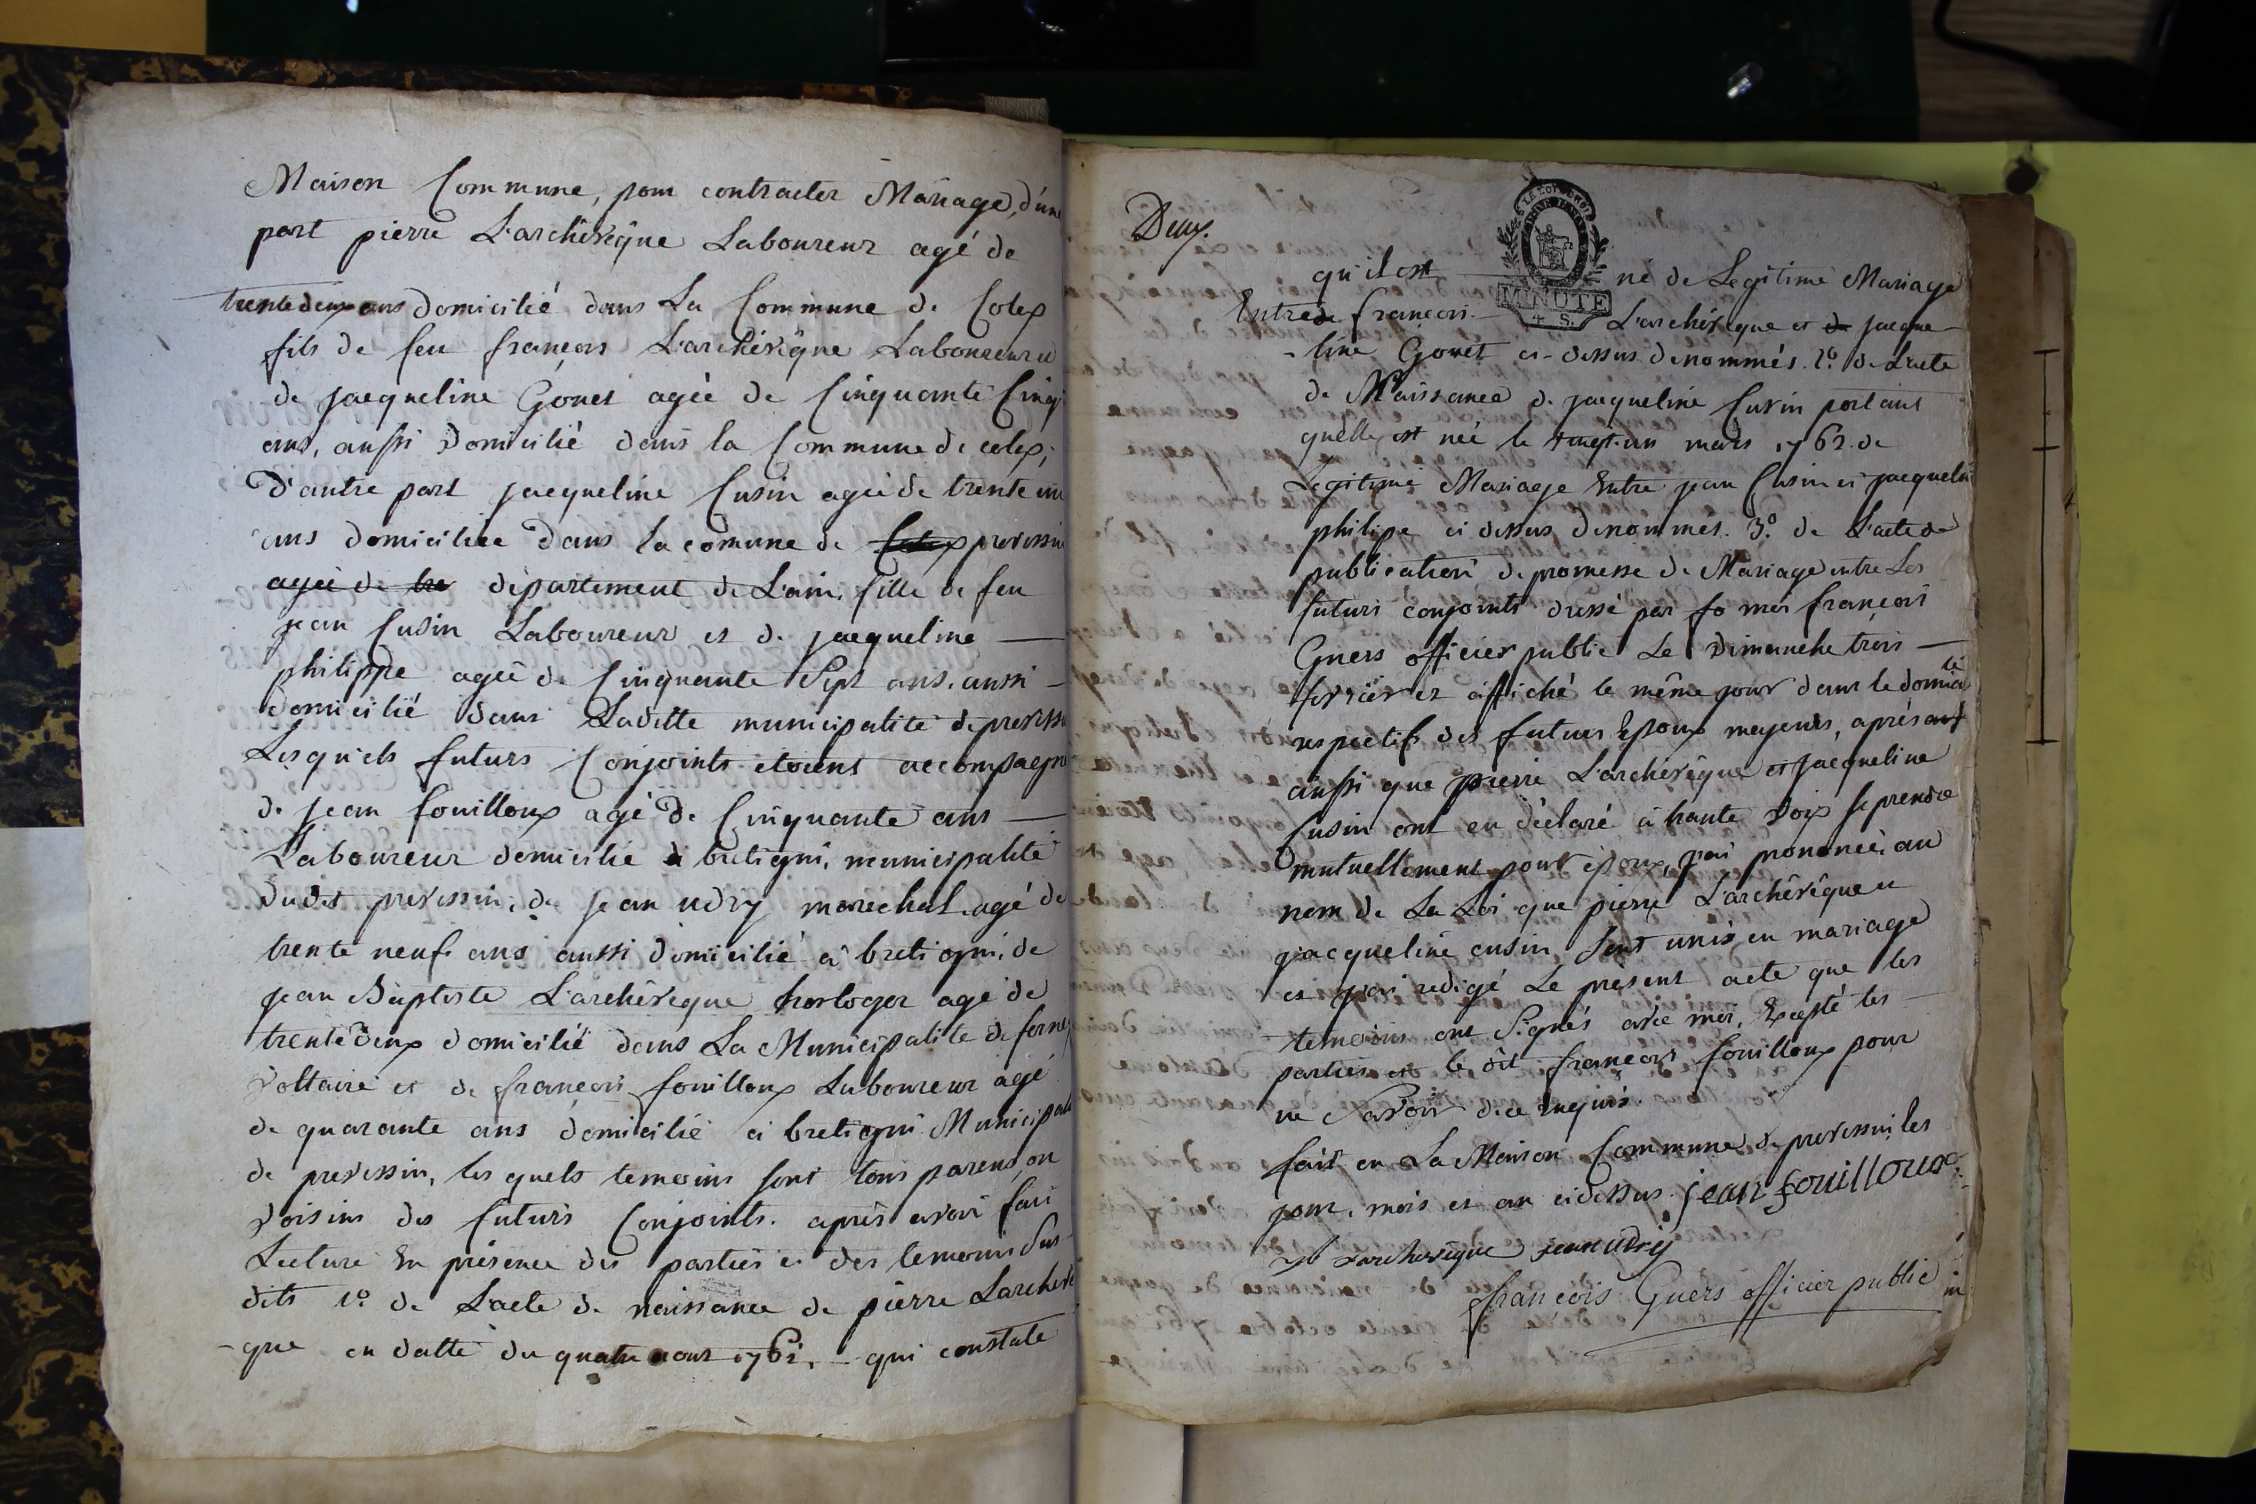 Maison Commune, pour contracter Mariage, d'une
part pierre L'archévêque Laboureur agé de
trente deux ans domicilié dans La Commune de Colex
fils de feu françois L'archévêque Laboureur et
de jacqueline Gonet agée de Cinquante Cinq
ans, aussi domicilié dans la Commune de colex;
D'autre part jacqueline Cusin agée de trente un
ans domiciliée dans la comune de Colex prevessin
agée de tre département de L'ain, fille de feu
jean Cusin Laboureur et de jacqueline
philippe agée de Cinquante Sept ans, aussi
domicilié dans Laditte municipalité de prevessin
Lesquels futurs Conjoints étoient accompagné
de jean fouilloux agé de Cinquante ans
Laboureur domicilié à bretigni, municipalité
dudit prevessin, de jean udry marechal agé de
trente neuf ans aussi domicilié à bretigni, de
jean Baptiste L'archévêque horloger agé de
trente deux domicilié dans La Municipalité de ferney
Voltaire et de françois fouilloux Laboureur agé
de quarante ans domicilié à bretigni Municipali
de prevessin, les quels temoins sont tous parens, ou
voisins des futurs Conjoints. après avoir fait
Lecture En présence des parties et des temoins Sus-
dits 1o. de L'acte de naissance de pierre Larchevê
-que en datte du quatre aout 1761, qui constate
Deux.
MINUTE
4 S.
qu'il est né de Legitime Mariage
Entre de françois L'archévêque et de jacque-
-line Gonet ci-dessus denommés. 2o. de L'acte
de Naissance de jacqueline Cusin portant
qu'elle est née le vingt-un mars 1762. de
Legitime Mariage Entre jean Cusin et jacqueline
philipe ci dessus denommes. 3o. de L'acte de
publication de promesse de Mariage entre Les
futurs conjoints dressé par moi françois
Guers officier public Le Dimanche trois
fevrier et affiché le même jour dans le domici
le
respectif des futurs Epoux moyenés, après
aussi que pierre L'archévêque et jacqueline
Cusin ont eu déclaré à haute voix se prendre
mutuellement pour époux, j'ai prononcé, au
nom de La Loi que pierre L'archévêque et
jacqueline cusin, sont unis en mariage
et j'ai redigé Le présent acte que les
temoins ont Signés avec moi, Excepté les
parties et le dit françois fouilloux pour
ne Savoir de ce enquis.
fait en La Maison Commune de prevessin les
jour, mois et an cidessus. jean fouilloux
jb Larchevêque jean udry
françois Guers officier public